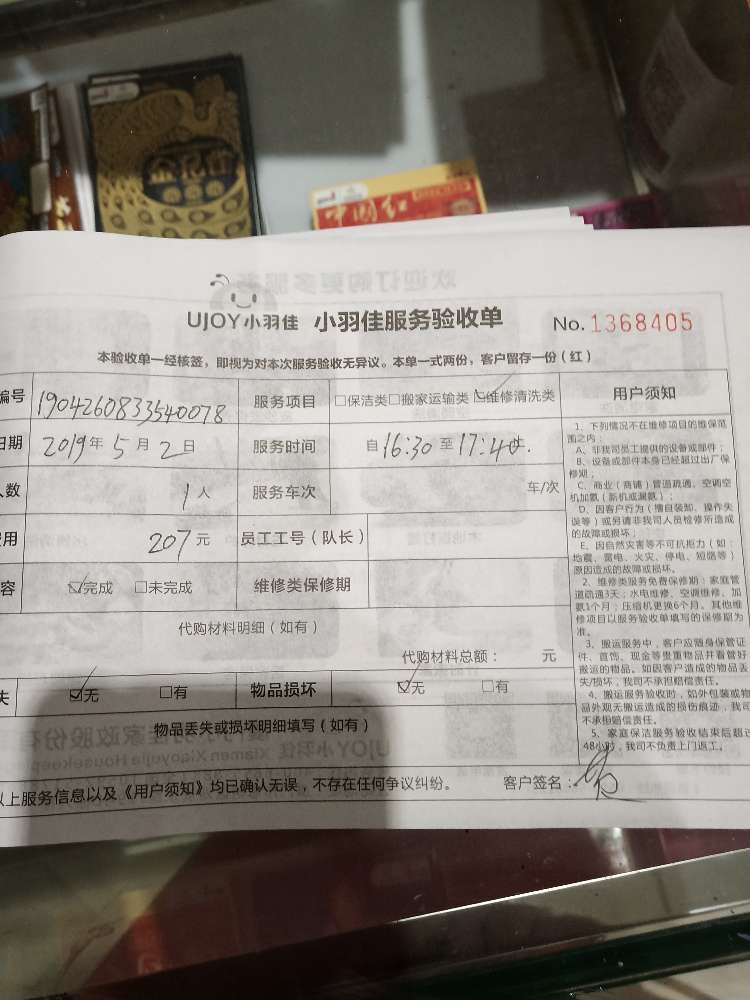 中国红
UJOY小羽佳 小羽佳服务验收单 No. 1368405
本验收单一经核签，即视为对本次服务验收无异议。本单一式两份，客户留存一份（红）
编号 1904260833540078 服务项目 □保洁类□搬家运输类☑维修清洗类
日期 2019年5月2日 服务时间 自16:30至17:40
人数 1人 服务车次 车/次
费用 207元 员工工号（队长）
容 ☑完成 □未完成 维修类保修期
代购材料明细（如有）
代购材料总额： 元
失 ☑无 □有 物品损坏 ☑无 □有
物品丢失或损坏明细填写（如有）
以上服务信息以及《用户须知》均已确认无误，不存在任何争议纠纷。 客户签名：
用户须知
1、下列情况不在维修项目的维保范
围之内：
A、非我司员工提供的设备或部件；
B、设备或部件本身已经超过出厂保
修期；
C、商业（商铺）管道疏通、空调空
机加氨（新机或漏氨）；
D、因客户行为（擅自装卸、操作失
误等）或另请非我司人员检修所造成
的故障或损坏；
E、因自然灾害等不可抗拒力（如：
地震、雷电、火灾、停电、短路等）
原因造成的故障或损坏。
2、维修类服务免费保修期：家庭管
道疏通3天；水电维修、空调维修、加
氨1个月；压缩机更换6个月。其他维
修项目以服务验收单填写的保修期为
准。
3、搬运服务中，客户应随身保管证
件、首饰、现金等贵重物品并看管好
搬运的物品。如因客户造成的物品丢
失/损坏，我司不承担赔偿责任。
4、搬运服务验收时，如外包装或物
品外观无搬运造成的损伤痕迹，我司
不承担赔偿责任。
5、家庭保洁服务验收结束后超过
48小时，我司不负责上门返工。